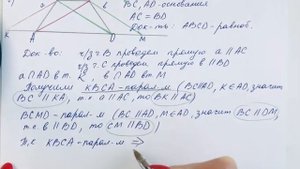 BC, AD - основания
AC = BD
Док-ть: ABCD - равноб.
K A D M
Док-во: ч/з т. B проведем прямую a ∥ AC
ч/з т. C проведем прямую в ∥ BD
a ∩ AD в т. K, в ∩ AD в т M
Получили KBCA - парал-м (BC∥AD, K∈AD, значит
BC ∥ KA, т.к a ∥ AC, то BK ∥ AC)
BCMD - парал-м (BC ∥ AD, M∈AD, значит BC∥DM,
т.к в ∥ BD, то CM ∥ BD)
Т.к KBCA - парал-м ⇒